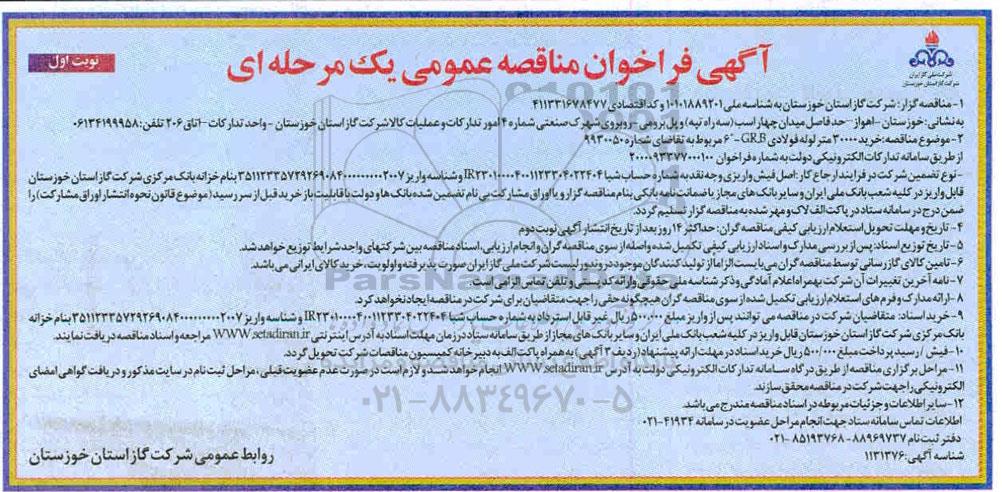 شرکت ملی گاز ایران
شرکت گاز استان خوزستان
نوبت اول
آگهی فراخوان مناقصه عمومی یک مرحله ای
۱- مناقصه گزار: شرکت گاز استان خوزستان به شناسه ملی ۱۰۱۰۱۸۸۹۲۰۱ و کد اقتصادی ۴۱۱۳۳۱۶۷۸۴۷۷
به نشانی: خوزستان - اهواز - حد فاصل میدان چهار اسب (سه راه تپه) و پل بروجی - روبروی شهرک صنعتی شماره ۴ امور تدارکات و عملیات کالا شرکت گاز استان خوزستان - واحد تدارکات - اتاق ۲۰۶ تلفن: ۰۶۱۳۴۱۹۹۹۵۸
۲- موضوع مناقصه: خرید ۳۰۰۰۰ متر لوله فولادی GR.B - ۶" مربوط به تقاضای شماره ۹۹۳۰۰۵۰
از طریق سامانه تدارکات الکترونیکی دولت به شماره فراخوان ۲۰۰۰۰۹۳۳۷۷۰۰۰۱۰۰
- نوع تضمین شرکت در فرایند ارجاع کار: اصل فیش واریزی وجه نقد به شماره حساب شبا IR۲۳۰۱۰۰۰۰۴۰۰۱۱۲۳۳۰۴۰۲۲۴۰۴ و شناسه واریز ۳۵۱۱۲۳۳۵۷۲۹۲۶۹۰۸۴۰۰۰۰۰۰۰۰۰۰۲۰۰۷ بنام خزانه بانک مرکزی شرکت گاز استان خوزستان
قابل واریز در کلیه شعب بانک ملی ایران و سایر بانک های مجاز یا ضمانت نامه بانکی بنام مناقصه گزار و یا اوراق مشارکت بی نام تضمین شده بانک ها و دولت با قابلیت باز خرید قبل از سر رسید (موضوع قانون نحوه انتشار اوراق مشارکت) را
ضمن درج در سامانه ستاد در پاکت الف لاک و مهر شده به مناقصه گزار تسلیم گردد.
۴- تاریخ و مهلت تحویل استعلام ارزیابی کیفی مناقصه گران: حداکثر ۱۴ روز بعد از تاریخ انتشار آگهی نوبت دوم
۵- تاریخ توزیع اسناد: پس از بررسی مدارک و اسناد ارزیابی کیفی تکمیل شده واصله از سوی مناقصه گران و انجام ارزیابی، اسناد مناقصه بین شرکتهای واجد شرایط توزیع خواهد شد.
۶- تامین کالای گازرسانی توسط مناقصه گران می بایست الزاما از تولید کنندگان موجود در وندور لیست شرکت ملی گاز ایران صورت پذیرفته و اولویت، خرید کالای ایرانی می باشد.
۷- نامه آخرین تغییرات آن شرکت بهمراه اعلام آمادگی و ذکر شناسه ملی حقوقی و ارائه کد پستی و تلفن تماس الزامی است
۸- ارائه مدارک و فرم های استعلام ارزیابی تکمیل شده از سوی مناقصه گران هیچگونه حقی را جهت متقاضیان برای شرکت در مناقصه ایجاد نخواهد کرد.
۹- خرید اسناد: متقاضیان شرکت در مناقصه می توانند پس از واریز مبلغ ۵۰۰,۰۰۰ ریال غیر قابل استرداد به شماره حساب شبا IR۲۳۰۱۰۰۰۰۴۰۰۱۱۲۳۳۰۴۰۲۲۴۰۴ و شناسه واریز ۳۵۱۱۲۳۳۵۷۲۹۲۶۹۰۸۴۰۰۰۰۰۰۰۰۰۰۲۰۰۷ بنام خزانه
بانک مرکزی شرکت گاز استان خوزستان قابل واریز در کلیه شعب بانک ملی ایران و سایر بانک های مجاز از طریق سامانه ستاد در زمان مهلت اسناد به آدرس اینترنتی WWW.setadiran.ir مراجعه و اسناد مناقصه دریافت نمایند.
۱۰- فیش / رسید پرداخت مبلغ ۵۰۰/۰۰۰ ریال خرید اسناد در مهلت ارائه پیشنهاد (ردیف ۳ آگهی) به همراه پاکت الف به دبیر خانه کمیسیون مناقصات شرکت تحویل گردد.
۱۱- مراحل برگزاری مناقصه از طریق درگاه سامانه تدارکات الکترونیکی دولت به آدرس WWW.setadiran.ir انجام خواهد شد و لازم است در صورت عدم عضویت قبلی، مراحل ثبت نام در سایت مذکور و دریافت گواهی امضای
الکترونیکی را جهت شرکت در مناقصه محقق سازند.
۱۲- سایر اطلاعات و جزئیات مربوطه در اسناد مناقصه مندرج می باشد.
اطلاعات تماس سامانه ستاد جهت انجام مراحل عضویت در سامانه ۴۱۹۳۴-۰۲۱
دفتر ثبت نام ۸۸۹۶۹۷۳۷ - ۸۵۱۹۳۷۶۸-۰۲۱
شناسه آگهی: ۱۱۳۱۳۷۶
روابط عمومی شرکت گاز استان خوزستان
ParsNamadData
۰۲۱-۸۸۳۴۹۶۷۰-۵